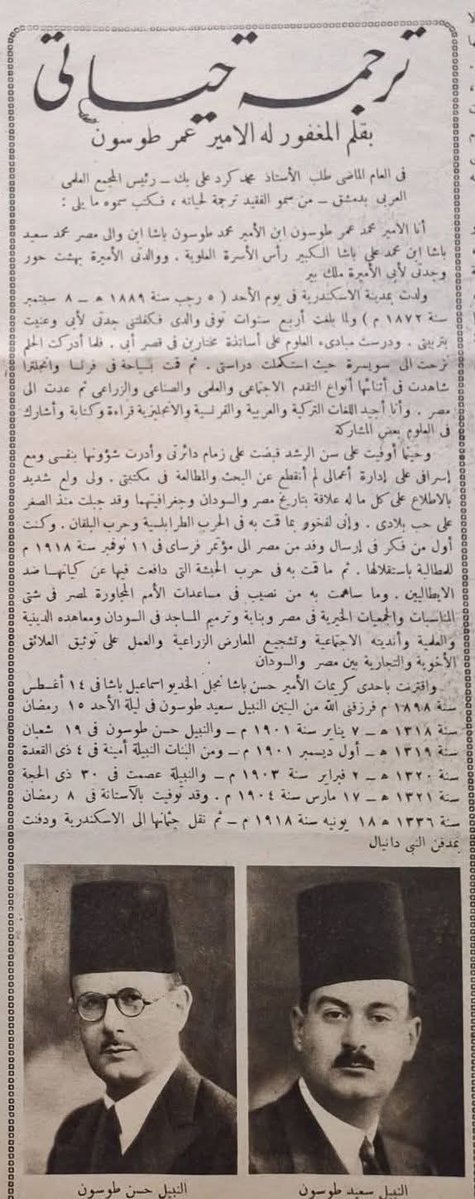 ترجمة حياتي
بقلم المغفور له الامير عمر طوسون
فى العام الماضى طلب الأستاذ محمد كرد على بك ــ رئيس المجمع العلمى
العربى بدمشق ــ من سمو الفقيد ترجمة لحياته ، فكتب سموه ما يلى :
أنا الامير محمد عمر طوسون ابن الأمير محمد طوسون باشا ابن والى مصر محمد سعيد
باشا ابن محمد على باشا الكبير رأس الأسرة العلوية . ووالدتى الأميرة بهشت حور
وجدتى لأبى الأميرة ملك بير
ولدت بمدينة الاسكندرية فى يوم الأحد ( ٥ رجب سنة ١٨٨٩ هـ ــ ٨ سبتمبر
سنة ١٨٧٢ م ) ولما بلغت أربع سنوات توفى والدى فكفلتنى جدتى لأبى وعنيت
بتربيتى . ودرست مبادىء العلوم على أساتذة مختارين فى قصر أبى . فلما أدركت الحلم
نزحت الى سويسرة حيث استكملت دراستى . ثم قمت بسياحة فى فرنسا وانجلترا
شاهدت فى أثنائها أنواع التقدم الاجتماعى والعلمى والصناعى والزراعى ثم عدت الى
مصر . وأنا أجيد اللغات التركية والعربية والفرنسية والانجليزية قراءة وكتابة وأشارك
فى العلوم بعض المشاركة
وحينما أوفيت على سن الرشد قبضت على زمام دائرتى وأدرت شؤونها بنفسى ومع
إسرافى على إدارة أعمالى لم أنقطع عن البحث والمطالعة فى مكتبتى . ولى ولع شديد
بالاطلاع على كل ما له علاقة بتاريخ مصر والسودان وجغرافيتهما وقد جبلت منذ الصغر
على حب بلادى . وإنى لفخور بما قمت به فى الحرب الطرابلسية وحرب البلقان . وكنت
أول من فكر فى إرسال وفد من مصر الى مؤتمر فرساى فى ١١ نوفمبر سنة ١٩١٨ م
للمطالبة باستقلالها . ثم ما قمت به فى حرب الحبشة التى دافعت فيها عن كيانها ضد
الايطاليين . وما ساهمت به من نصيب فى مساعدات الأمم المجاورة لمصر فى شتى
المناسبات والجمعيات الخيرية فى مصر وبناية وترميم المساجد فى السودان ومعاهده الدينية
والعلمية وأنديته الاجتماعية وتشجيع المعارض الزراعية والعمل على توثيق العلائق
الأخوية والتجارية بين مصر والسودان
واقترنت باحدى كريمات الأمير حسن باشا نجل الخديو اسماعيل باشا فى ١٤ أغسطس
سنة ١٨٩٨ م فرزقنى الله من البنين النبيل سعيد طوسون فى ليلة الأحد ١٥ رمضان
سنة ١٣١٨ هـ ــ ٧ يناير سنة ١٩٠١ م ــ والنبيل حسن طوسون فى ١٩ شعبان
سنة ١٣١٩ هـ ــ أول ديسمبر ١٩٠١ م ــ ومن البنات النبيلة أمينة فى ٤ ذى القعدة
سنة ١٣٢٠ هـ ــ ٢ فبراير سنة ١٩٠٣ م ــ والنبيلة عصمت فى ٣٠ ذى الحجة
سنة ١٣٢١ هـ ــ ١٧ مارس سنة ١٩٠٤ م . وقد توفيت بالآستانة فى ٨ رمضان
سنة ١٣٣٦ هـ ١٨ يونيه سنة ١٩١٨ م ــ ثم نقل جثمانها الى الاسكندرية ودفنت
بمدفن النبى دانيال
النبيل سعيد طوسون
النبيل حسن طوسون